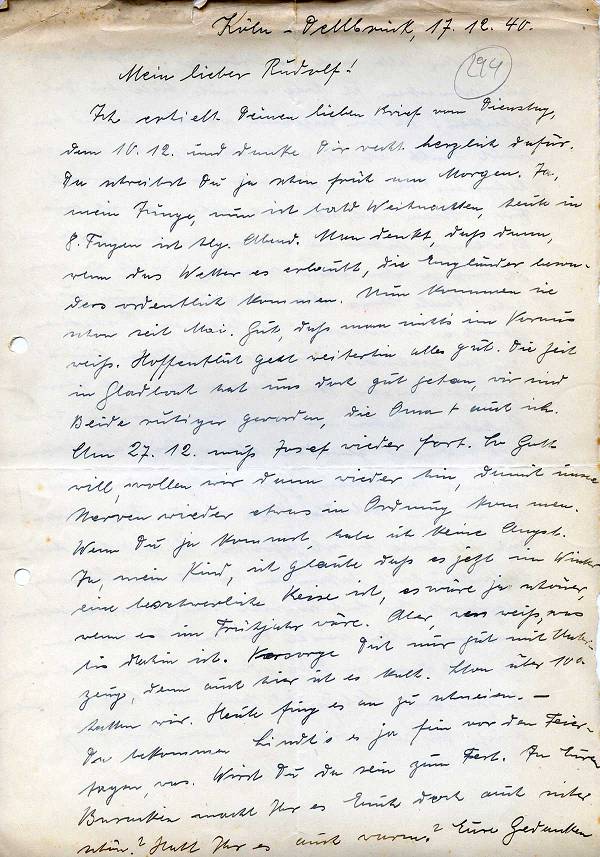 Köln-Dellbrück, 17.12.40.
294
Mein lieber Rudolf!
Ich erhielt Deinen lieben Brief vom Dienstag,
dem 10.12. und danke Dir recht herzlich dafür.
Da schreibst Du ja schon früh am Morgen. Ja,
mein Junge, nun ist bald Weihnachten, heute in
8. Tagen ist hlg. Abend. Man denkt, daß dann,
wenn das Wetter es erlaubt, die Engländer beson-
ders ordentlich kommen. Nun kommen sie
schon seit Mai. Gut, daß man nichts im Voraus
weiß. Hoffentlich geht weiterhin alles gut. Die Zeit
in Gladbach hat uns doch gut getan, wir sind
Beide ruhiger geworden, die Oma + auch ich.
Am 27.12. muß Josef wieder fort. So Gott
will, wollen wir dann wieder hin, damit unsere
Nerven wieder etwas in Ordnung kommen.
Wenn Du ja kommst, habe ich keine Angst.
Ja, mein Kind, ich glaube daß es jetzt im Winter
eine beschwerliche Reise ist, es wäre ja schöner,
wenn es im Frühjahr wäre. Aber, wer weiß, was
bis dahin ist. Versorge Dich nur gut mit Unter-
zeug, denn auch hier ist es kalt. Schon über 10°
hatten wir. Heute fing es an zu schneien. –
Da bekommen Lindt's es ja fein vor den Feier-
tagen, was. Wirst Du da sein zum Fest. In Euren
Baracken macht Ihr es Euch doch auch sicher
schön? Habt Ihr es auch warm? Eure Gedanken